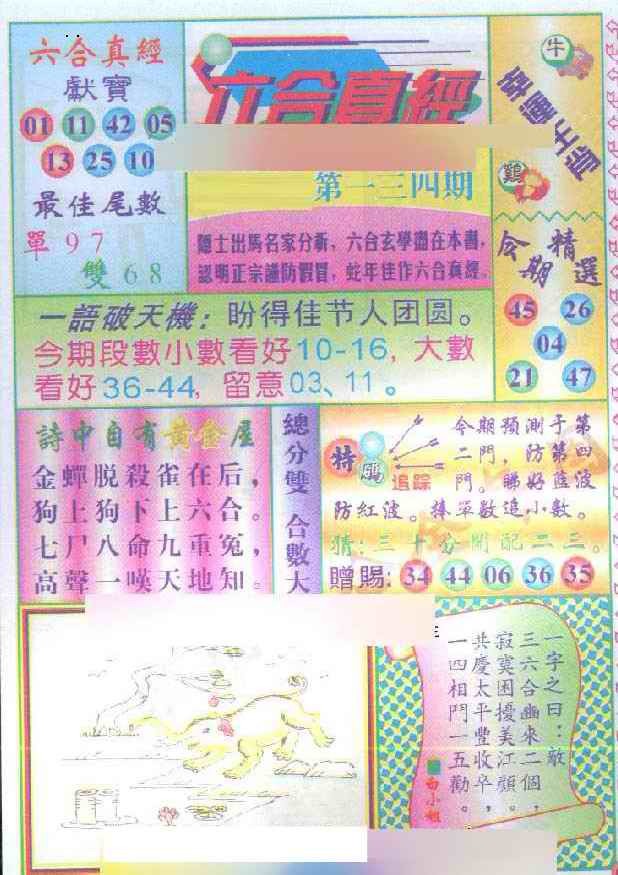 六合真經
獻寶
01 11 42 05
13 25 10
最佳尾數
單 9 7
雙 6 8
六合真經
第一三四期
隱士出馬名家分析，六合玄學盡在本書，
認明正宗謹防假冒，蛇年佳作六合真經。
牛
鷄
今期精選
45 26
04
21 47
一語破天機：盼得佳节人团圆。
今期段數小數看好10-16，大數
看好36-44，留意03、11。
詩中自有黃金屋
金蟬脱殺雀在后，
狗上狗下上六合。
七尸八命九重冤，
高聲一嘆天地知。
總分雙 合數大
特碼追踪
今期預測于第
二門，防第四
門。睇好藍波
防紅波。捧單數追小數。
猜：三十分開配二三。
贈賜：34 44 06 36 35
一字之曰：敵
三六合幽來二個，
寂寞困擾美江頭，
共慶太平豐收卒，
一四相門一五勸。
白小姐